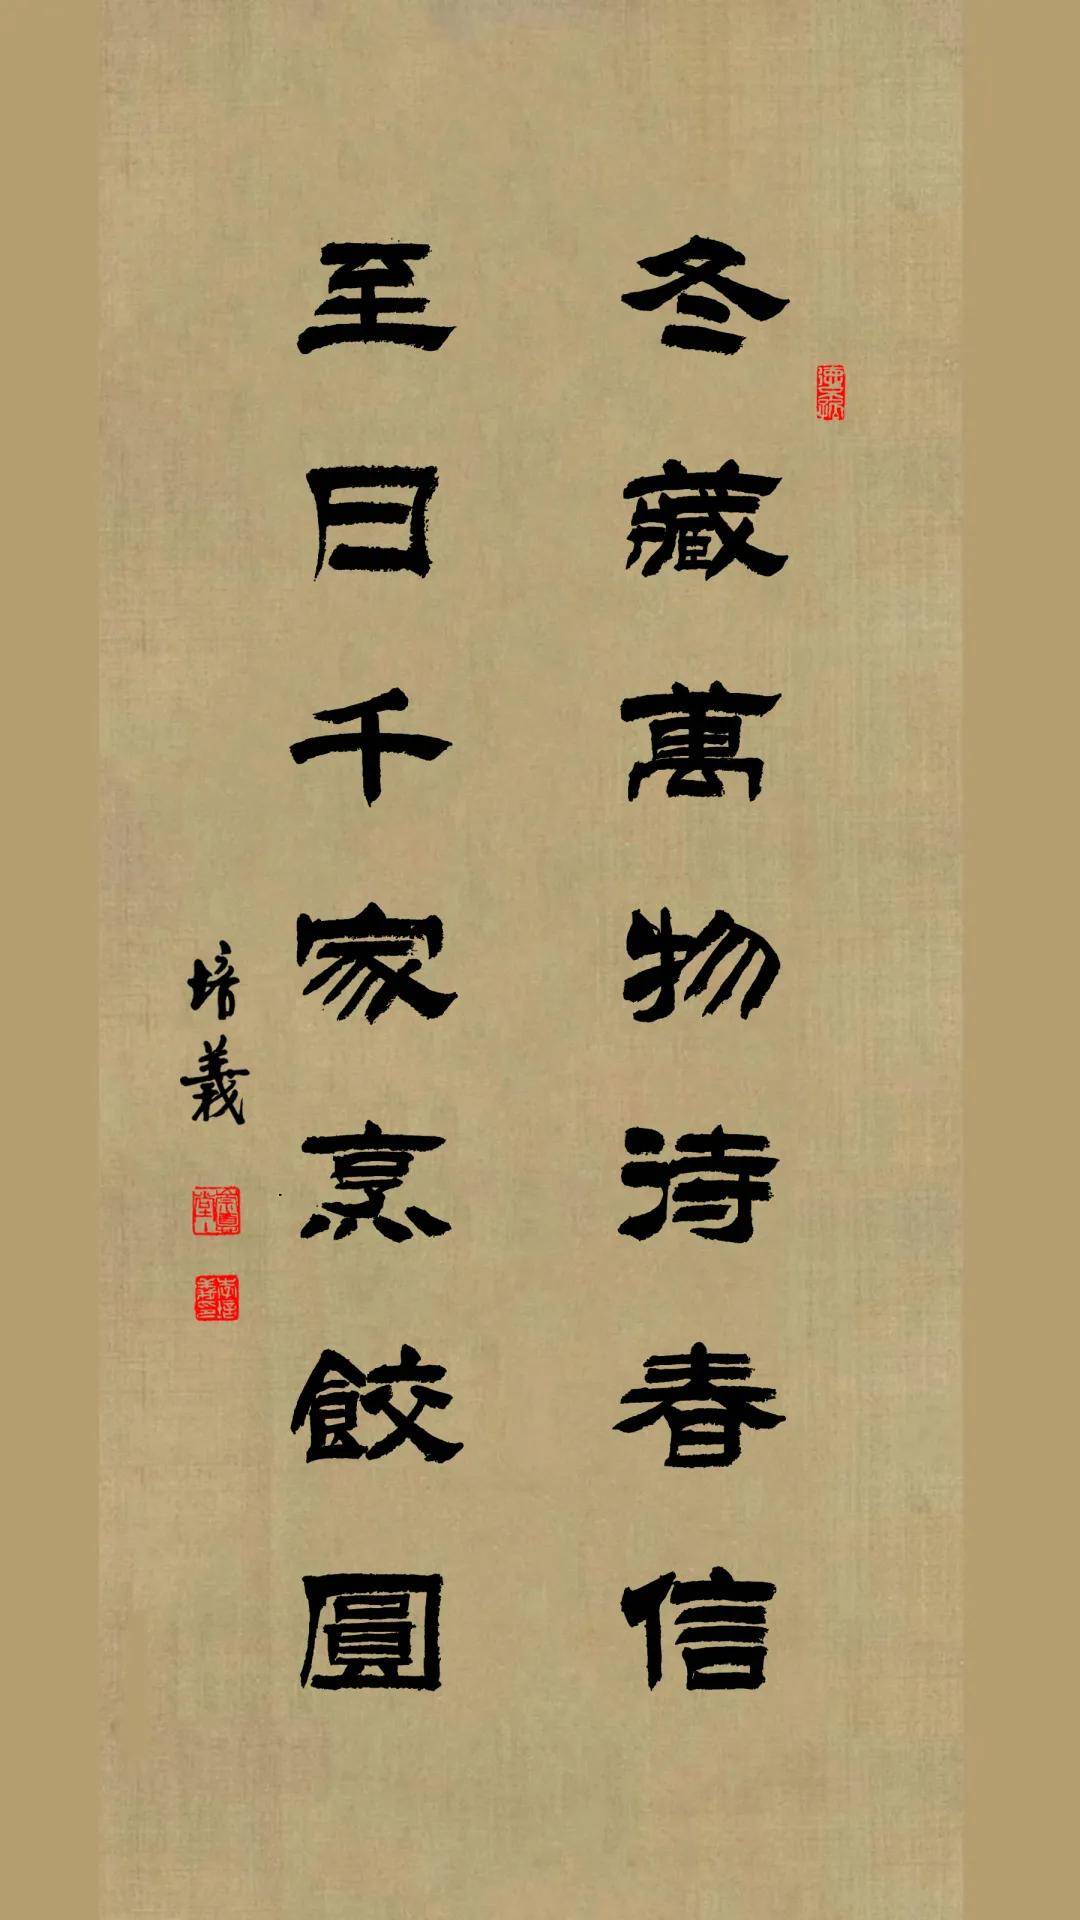 冬藏萬物待春信
至日千家烹餃圓
培義
李培義印